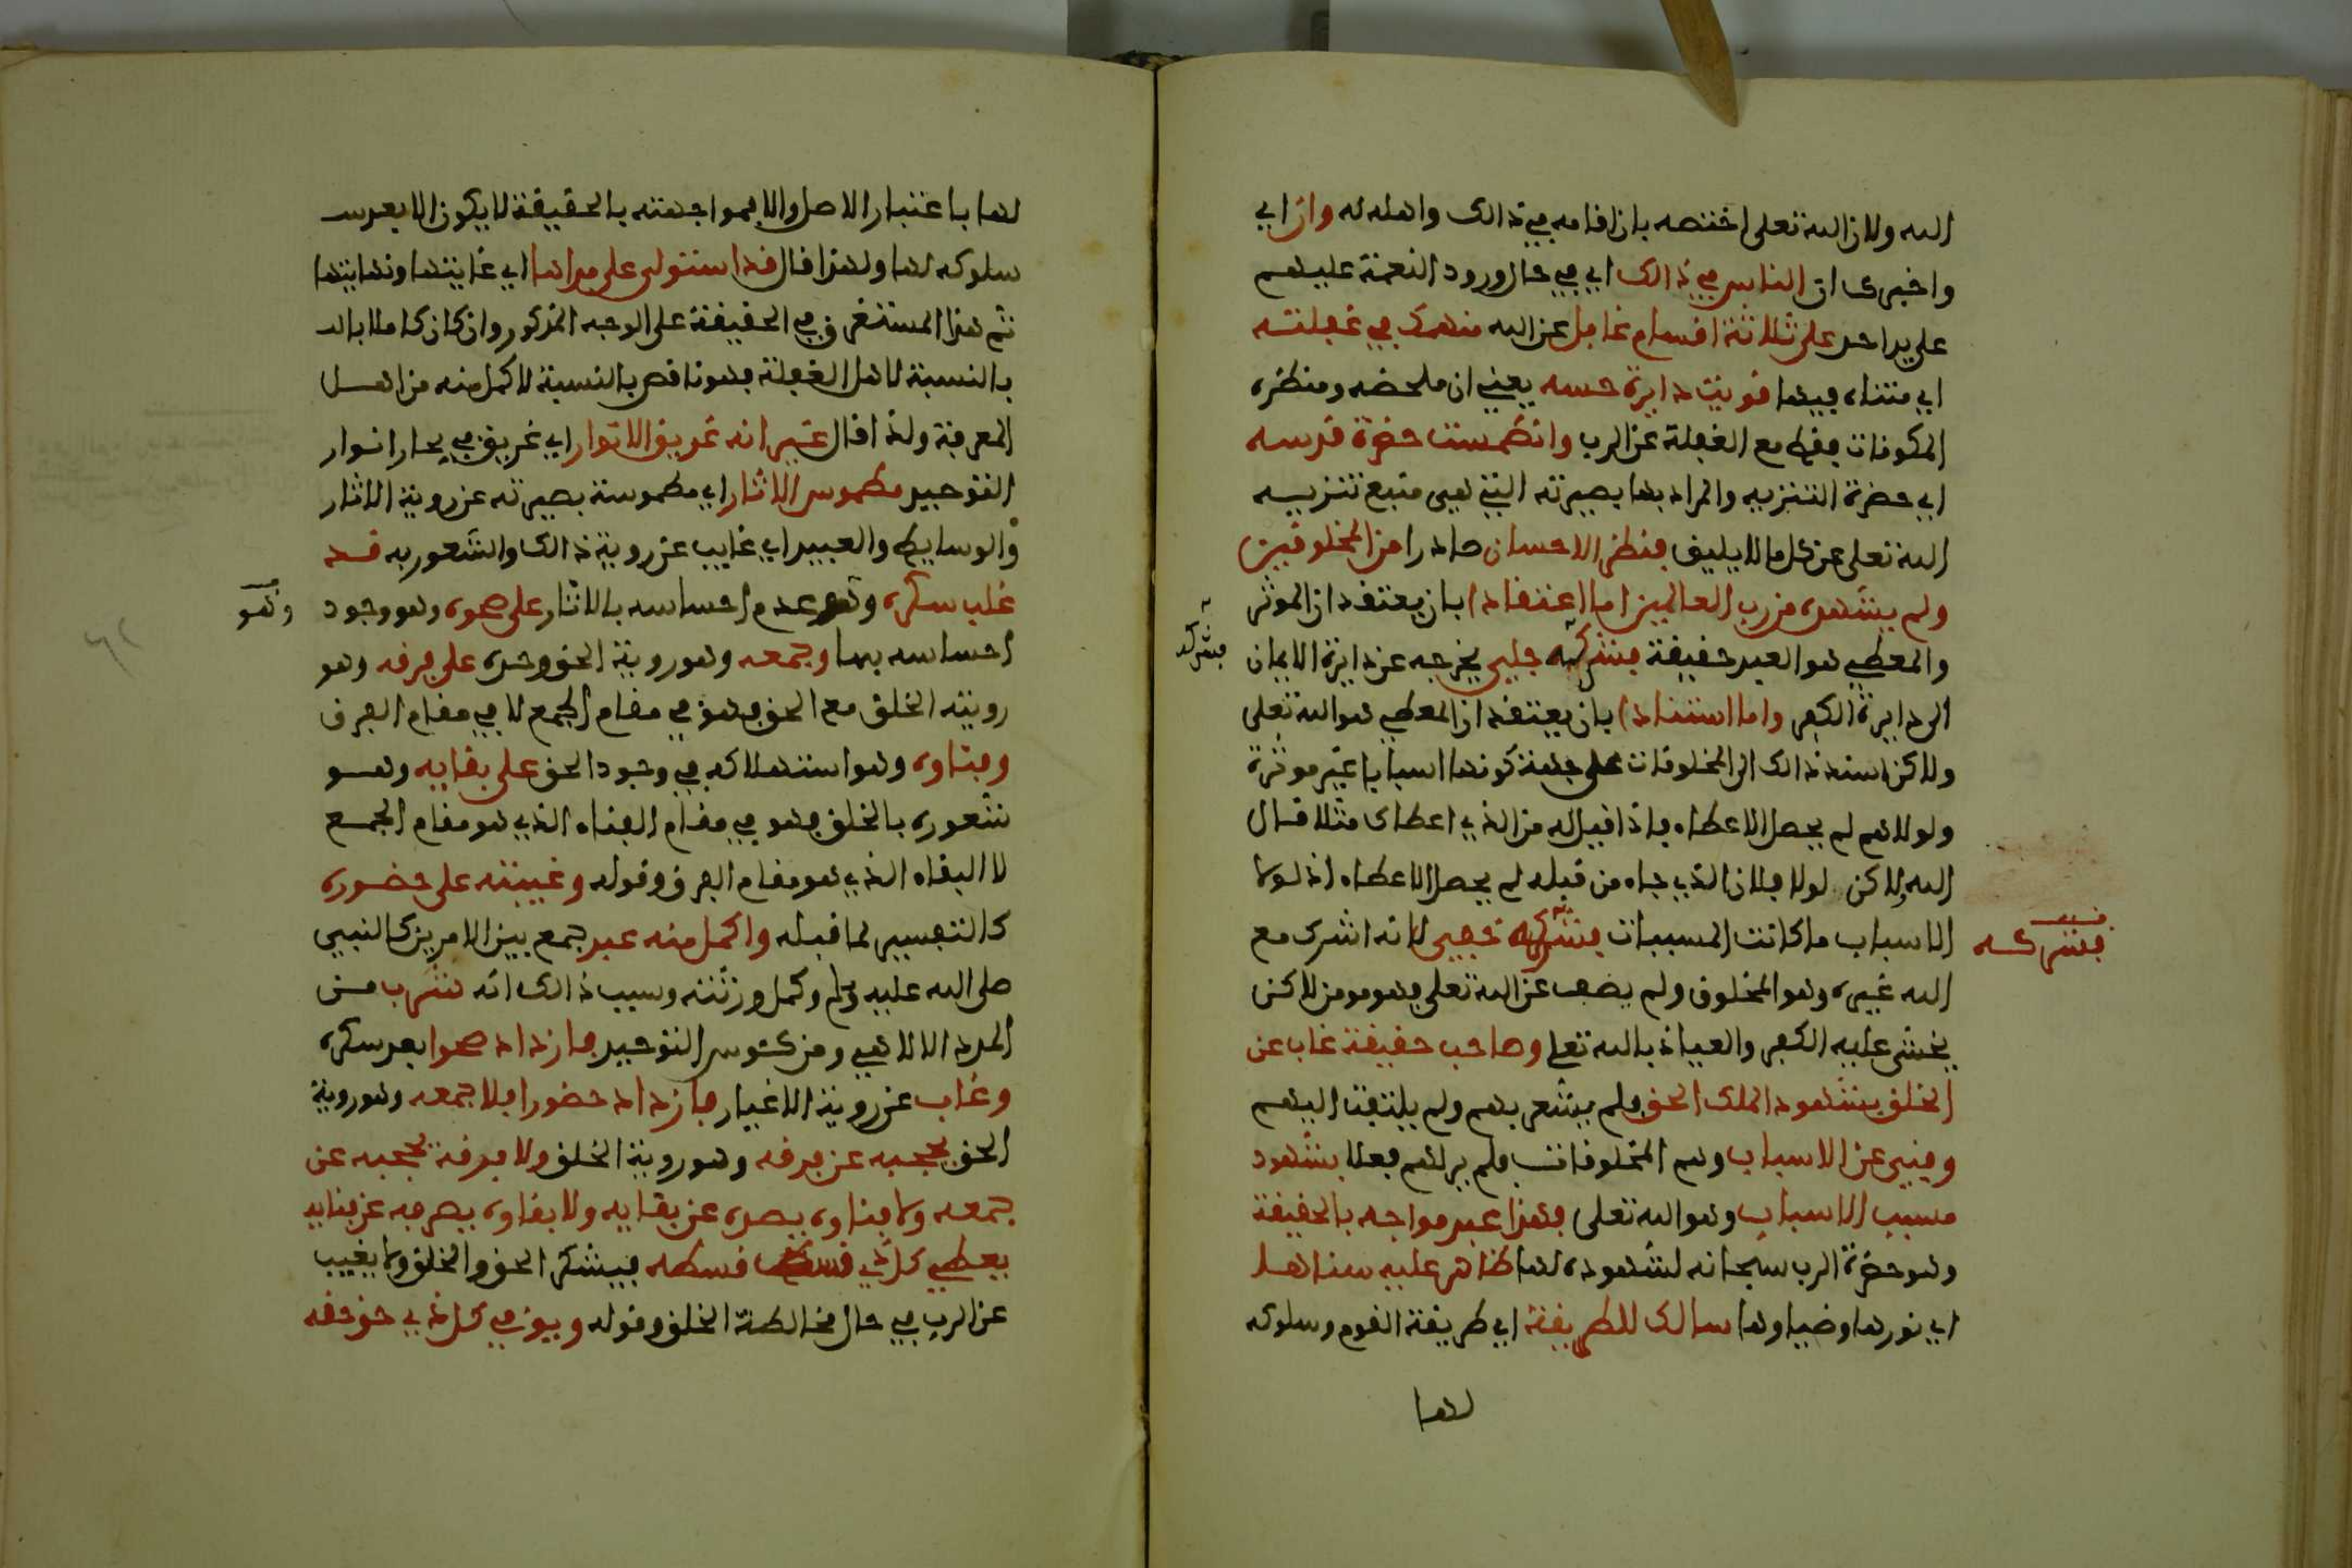 الله ولان الله تعلى اختصه بان اقامه في ذالك واهله له وان اي
واخبرك ان الناس في ذالك اي في حال ورود النعمة عليهم
على يد احد على ثلاثة اقسام غافل عن الله منهمك في غفلته
اي متناه فيها قويت دايرة حسه يعني ان ملحضه ومنظره
المكونات فقط مع الغفلة عن الرب وانطمست حضرة قدسه
اي حضرة التنزيه والمراد بها بصيرته التي هي منبع تنزيه
الله تعلى عن كل ما لا يليق فنظر الاحسان صادرا من المخلوقين
ولم يشهده من رب العالمين اما اعتقادا بان يعتقد ان الموثر
والمعطي هو العبد حقيقة فشركه جلي يخرجه عن دايرة الايمان
فشركه
الى دايرة الكفر واما استنادا بان يعتقد ان المعطي هو الله تعلى
ولاكن اسند ذالك الى المخلوقات على جهة كونها اسبابا غير موثرة
ولولاهم لم يحصل الاعطاء فاذا قيل له من الذي اعطاك مثلا قال
الله ولاكن لولا فلان الذي جاه من قبله لم يحصل الاعطاء اذ لولا
الاسباب ما كانت المسببات فشركه خفي لانه اشرك مع
فشركه
الله غيره وهو المخلوق ولم يضف عن الله تعلى فهو مومن لاكن
يخشى عليه الكفر والعياذ بالله تعلى وصاحب حقيقة غاب عن
الخلق بشهود الملك الحق فلم يشعر بهم ولم يلتفت اليهم
وفني عن الاسباب وهم المخلوقات فلم ير لهم فعلا بشهود
مسبب الاسباب وهو الله تعلى فهذا عبد مواجه بالحقيقة
وهو حضرة الرب سبحانه لشهوده لها ظاهر عليه سناها
اي نورها وضياوها سالك للطريقة اي طريقة القوم وسلوكه
لها
لها باعتبار الاصل والا فمواجهته بالحقيقة لا يكون الا بعد
سلوكه لها ولهذا قال قد استولى على مداها اي غايتها ونهايتها
ثم هذا المستغرق في الحقيقة على الوجه المذكور وان كان كاملا بالـ
بالنسبة لاهل الغفلة فهو ناقص بالنسبة لاكمل منه من اهل
المعرفة ولذا قال غير انه غريق الانوار اي غريق في بحار انوار
التوحيد مطموس الاثار اي مطموسة بصيرته عن روية الاثار
والوسايط والعبيد اي غايب عن روية ذالك والشعور به قد
غلب سكره وهو عدم احساسه بالاثار على صحوه وهو وجود
وهو
احساسه بها وجمعه وهو روية الحق وحده على فرقه وهو
رويته الخلق مع الحق فهو في مقام الجمع لا في مقام الفرق
وفناوه وهو استهلاكه في وجود الحق على بقايه وهو
شعوره بالخلق فهو في مقام الفناء الذي هو مقام الجمع
لا البقاء الذي هو مقام الفرق وقوله وغيبته على حضوره
كالتفسير لما قبله واكمل منه عبد جمع بين الامرين كالنبي
صلى الله عليه وسلم وكمل ورثته وسبب ذالك انه شرب من
المدد الالاهي ومن كئوس التوحيد فازداد صحوا بعد سكره
وغاب عن روية الاغيار فازداد حضورا فلا جمعه وهو روية
الحق يحجبه عن فرقه وهو روية الخلق ولا فرقه يحجبه عن
جمعه ولا فناوه يصده عن بقايه ولا بقاوه يصرفه عن فنايه
يعطي كل ذي قسط قسطه فيشكر الحق والخلق ولا يغيب
عن الرب في حال مخالطة الخلق وقوله ويوفي كل ذي حق حقه